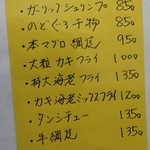 ・ガーリックシュリンプ 850
・のどぐろ干物 850
・本マグロ網定 950
・大粒カキフライ 1000
・特大海老フライ 1350
・カキ海老ミックスフライ 1200
・タンシチュー 1350
・牛網定 1350